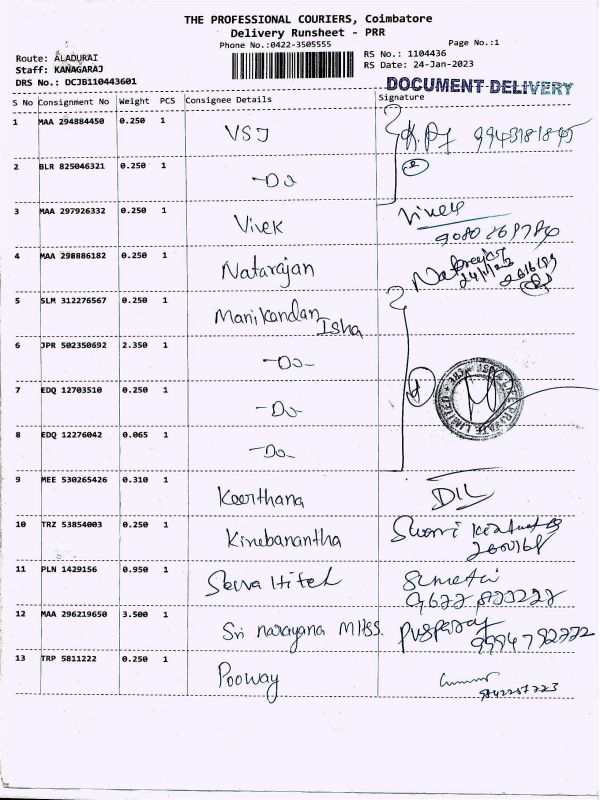 THE PROFESSIONAL COURIERS, Coimbatore
Delivery Runsheet - PRR
Phone No.:0422-3505555
Page No.:1
Route: ALADURAI
RS No.: 1104436
Staff: KANAGARAJ
RS Date: 24-Jan-2023
DRS No.: DCJB110443601
DOCUMENT DELIVERY
S No Consignment No Weight PCS Consignee Details Signature
1 MAA 294884450 0.250 1 VSJ
2 BLR 825046321 0.250 1 -Do
3 MAA 297926332 0.250 1 Vivek Vivek
4 MAA 298886182 0.250 1 Natarajan
5 SLM 312276567 0.250 1 Manikandan
Isha
6 JPR 502350692 2.350 1 -Do-
7 EDQ 12703510 0.250 1 -Do-
8 EDQ 12276042 0.065 1 -Do-
9 MEE 530265426 0.310 1 Keerthana DIL
10 TRZ 53854003 0.250 1 Kirubanantha
11 PLN 1429156 0.950 1
12 MAA 296219650 3.500 1 Sri narayana MHSS.
9994792222
13 TRP 5811222 0.250 1 Pooway